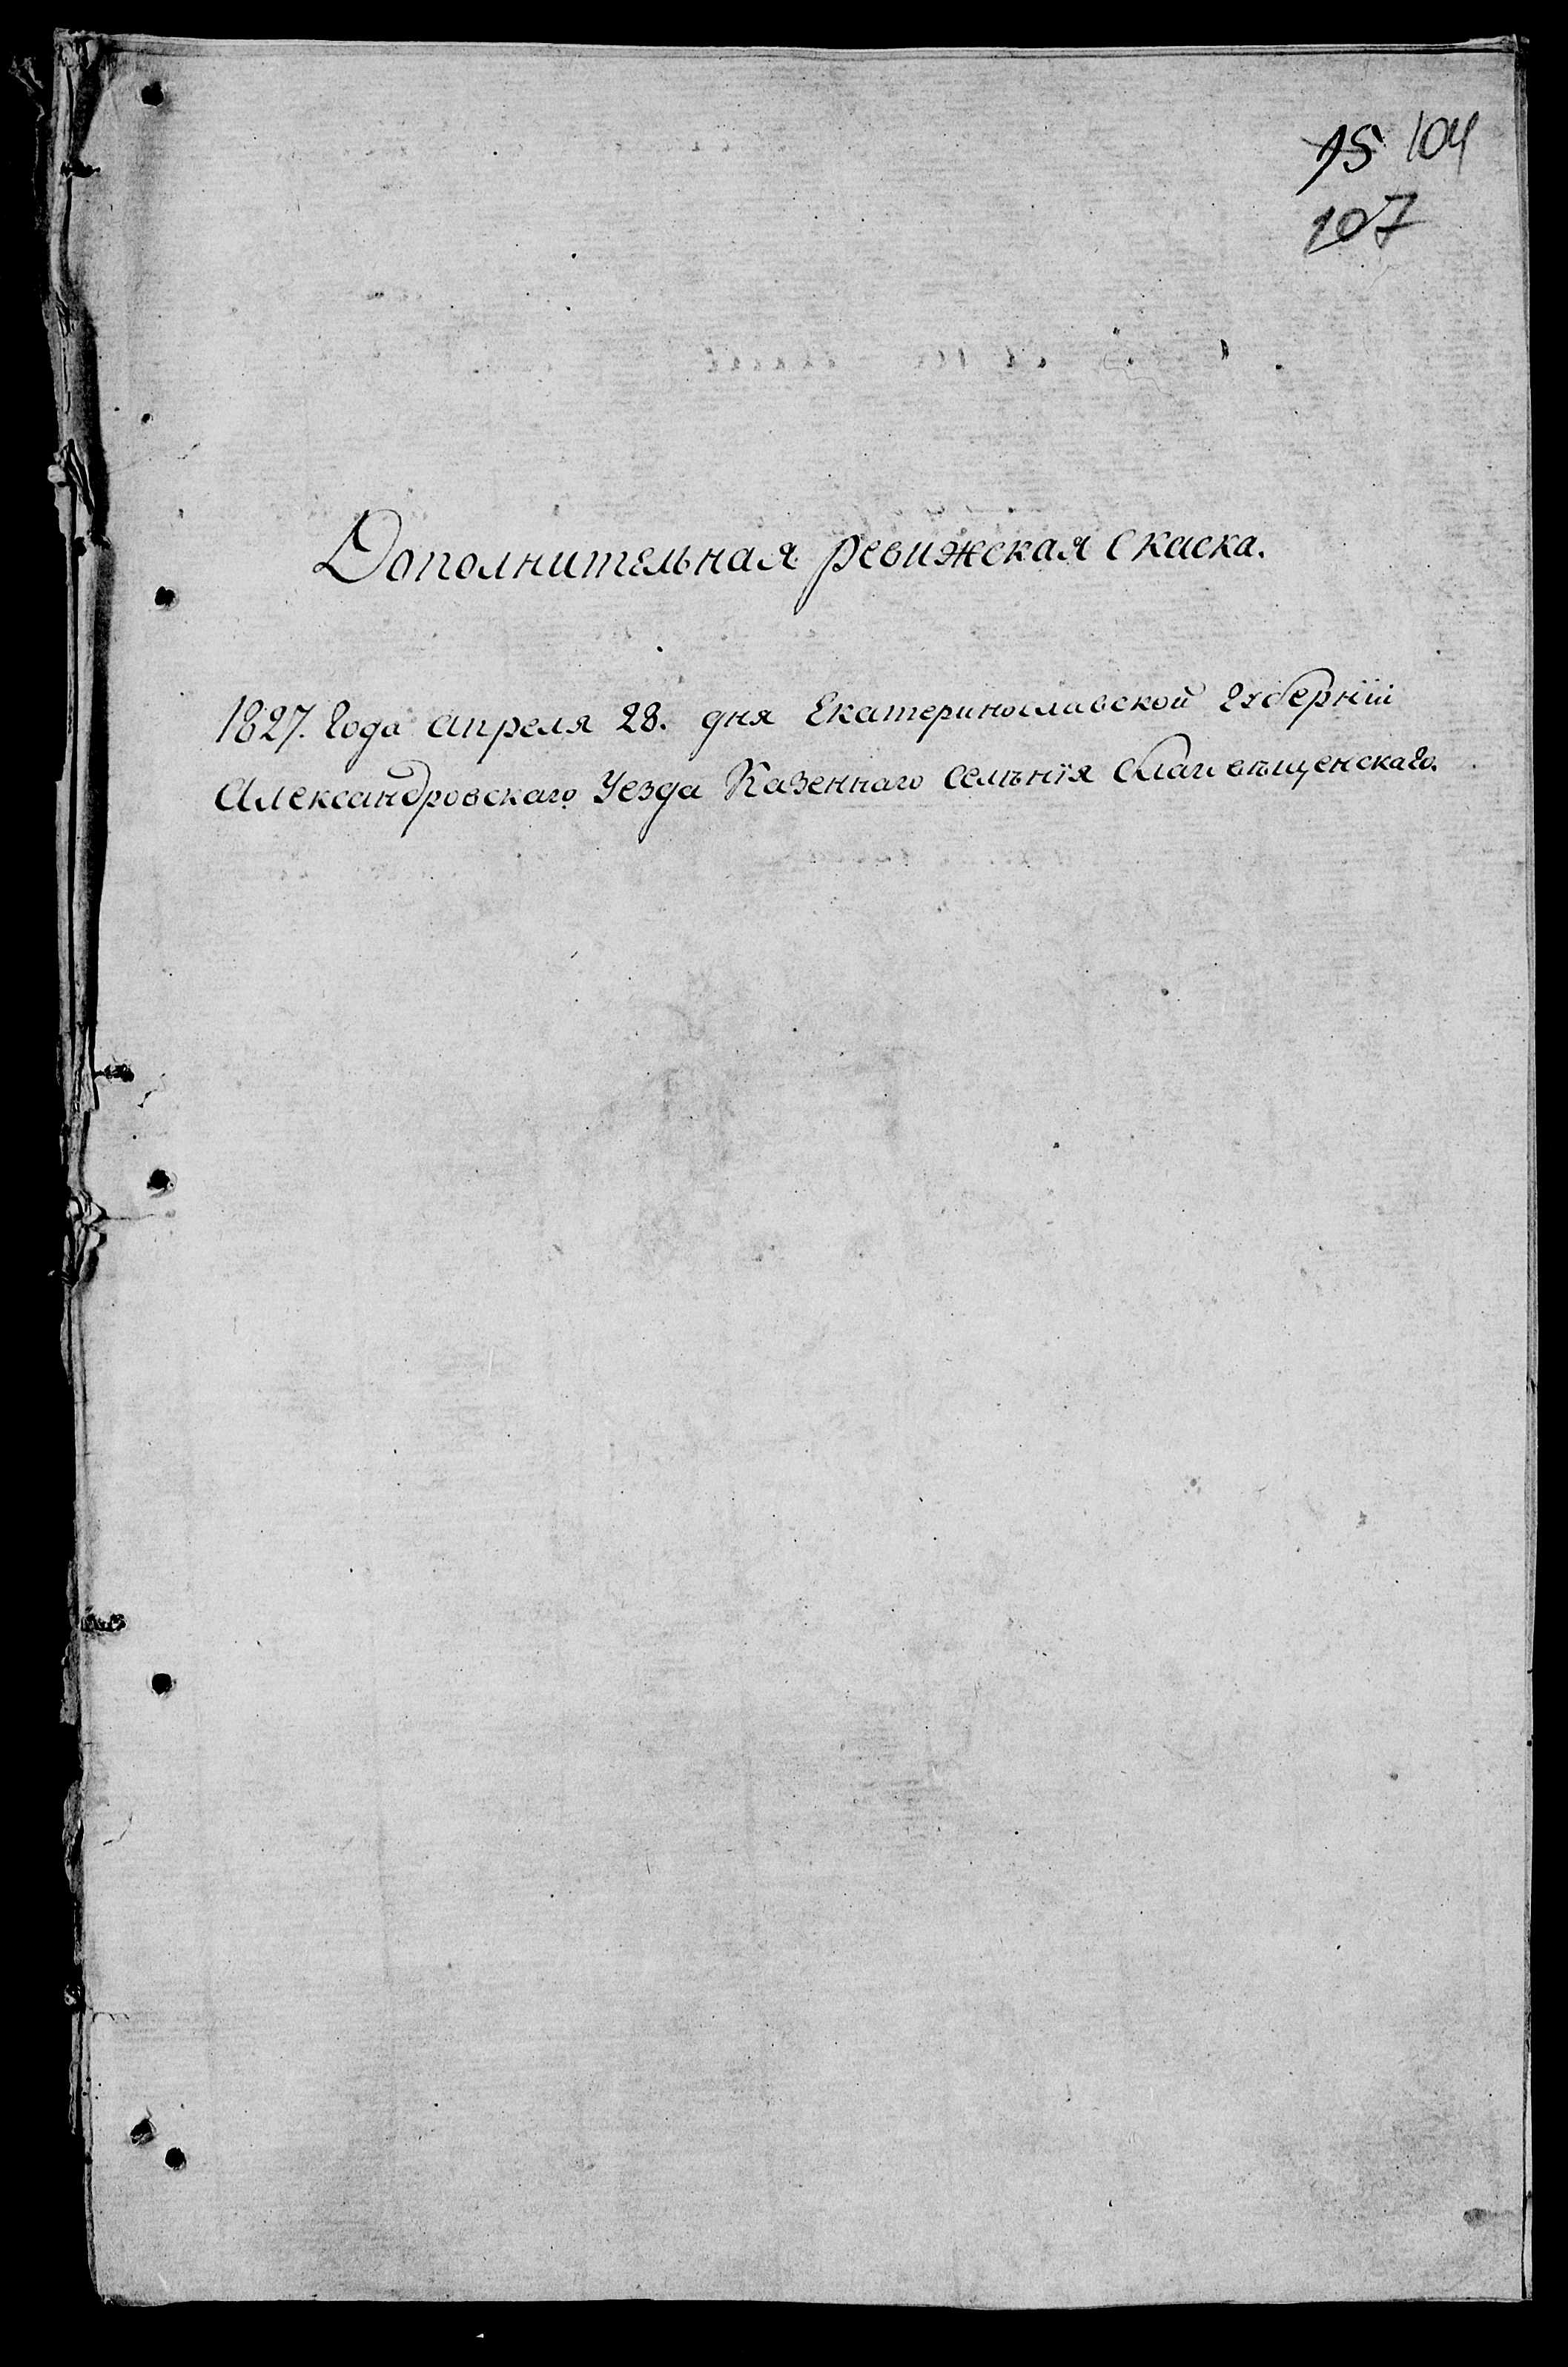 15 104
107
Дополнительная ревижская скаска.
1827. Года апреля 28. дня Екатеринославской Губерніи
Александровскаго Уезда Казеннаго селѣнія благовѣщенскаго.